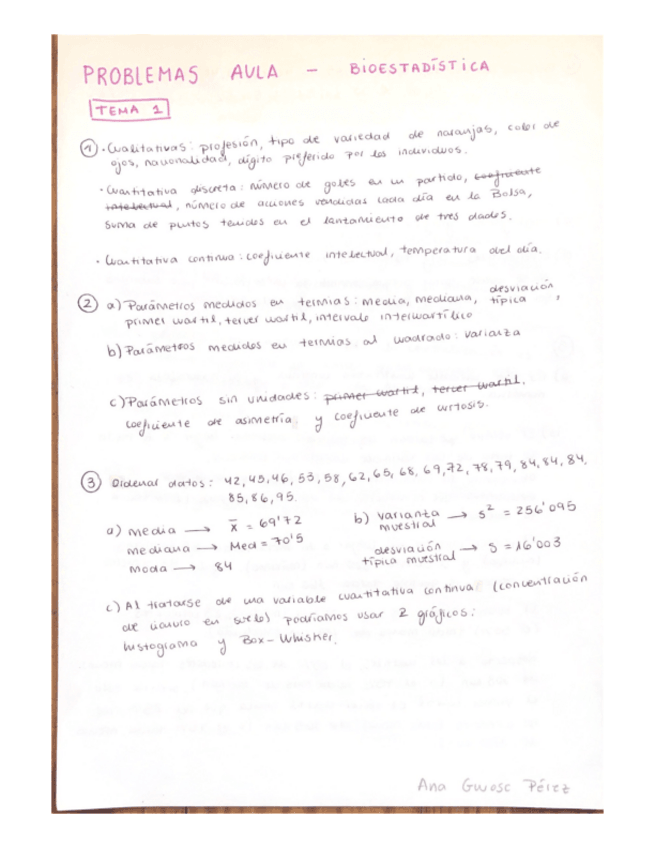 PROBLEMAS AULA - BIOESTADÍSTICA
TEMA 1
① · Cualitativas: profesión, tipo de variedad de naranjas, color de
ojos, nacionalidad, dígito preferido por los individuos.
· Cuantitativa discreta: número de goles en un partido, coeficiente
intelectual, número de acciones vendidas cada día en la Bolsa,
suma de puntos tenidos en el lanzamiento de tres dados.
· Cuantitativa continua: coeficiente intelectual, temperatura del día.
② a) Parámetros medidos en termias: media, mediana, desviación típica,
primer cuartil, tercer cuartil, intervalo intercuartílico
b) Parámetros medidos en termias al cuadrado: varianza
c) Parámetros sin unidades: primer cuartil, tercer cuartil,
coeficiente de asimetría y coeficiente de curtosis.
③ Ordenar datos: 42, 45, 46, 53, 58, 62, 65, 68, 69, 72, 78, 79, 84, 84, 84,
85, 86, 95.
a) media → x̄ = 69'72
mediana → Med = 70'5
moda → 84
b) varianza muestral → s² = 256'095
desviación típica muestral → s = 16'003
c) Al tratarse de una variable cuantitativa continua (concentración
de cianuro en suelo) podríamos usar 2 gráficos:
histograma y Box-Whisker.
Ana Gwosc Pérez